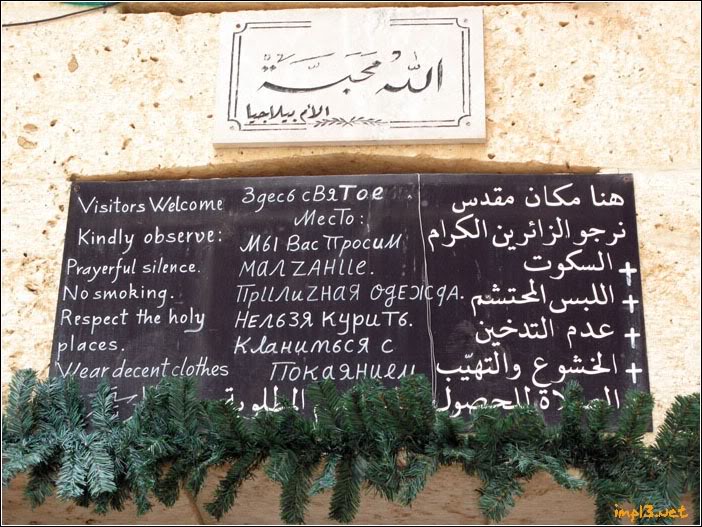 الله محبة
الأم بيلاجيا
Visitors Welcome
Kindly observe:
Prayerful silence.
No smoking.
Respect the holy
places.
Wear decent clothes
Здесь святое
место:
мы вас просим
малzаніiе.
Прiiлиzная одежда.
Нельзя курить.
Кланимься с
покаянием
هنا مكان مقدس
نرجو الزائرين الكرام
+ السكوت
+ اللبس المحتشم
+ عدم التدخين
+ الخشوع والتهيّب
الصلاة للحصول المطلوبة
impl3.net